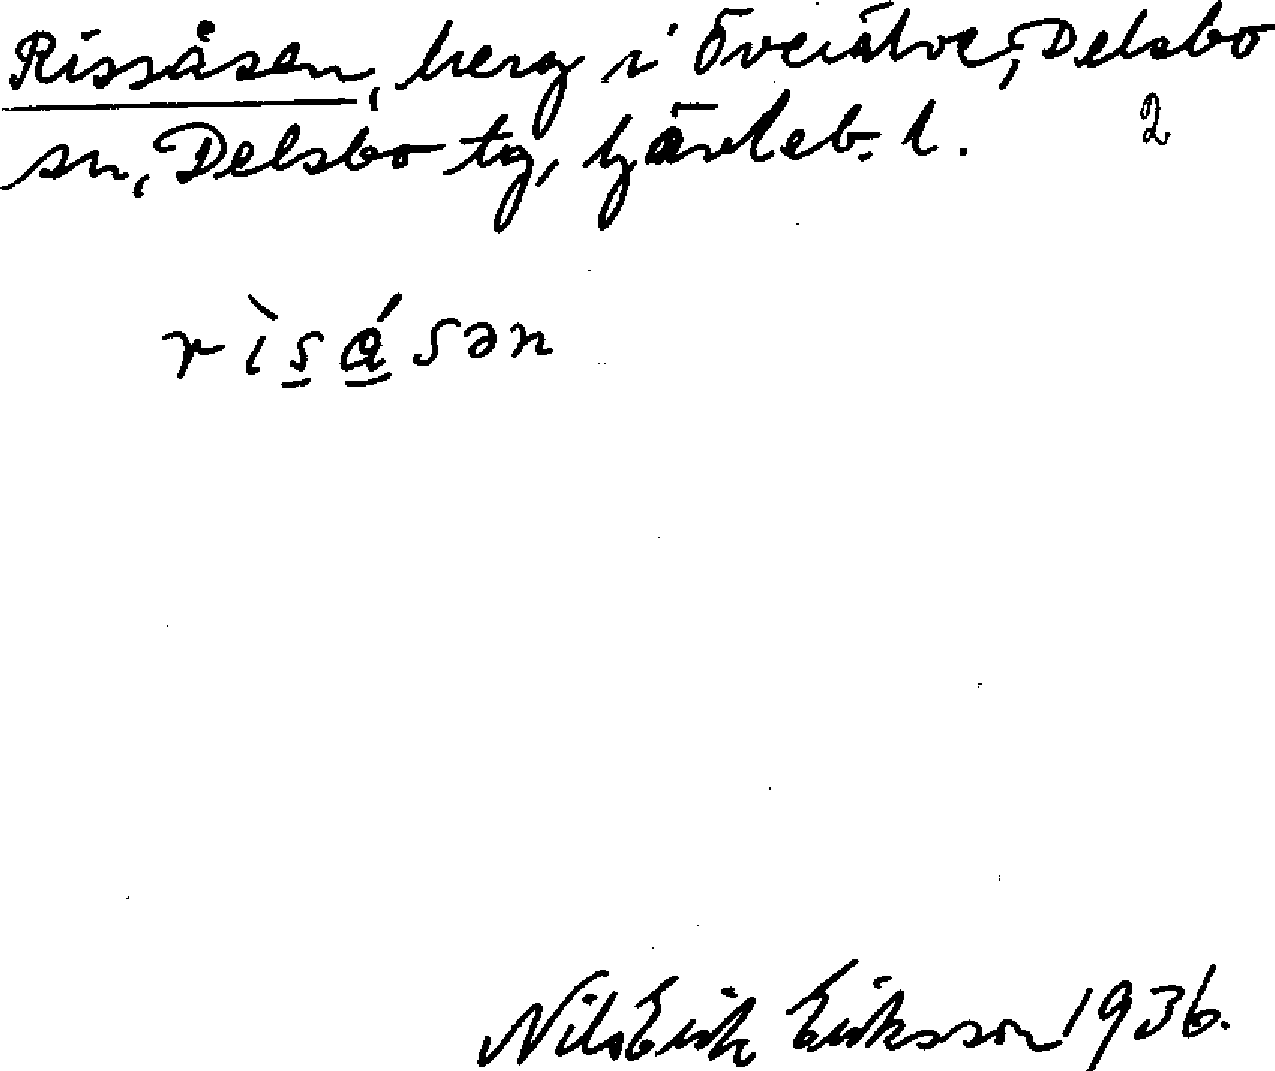 Rissåsen, berg i Överälve, Delsbo
sn, Delsbo tg, Gävleb. l. 2
rìsásən
Nils Erik Eriksson 1936.